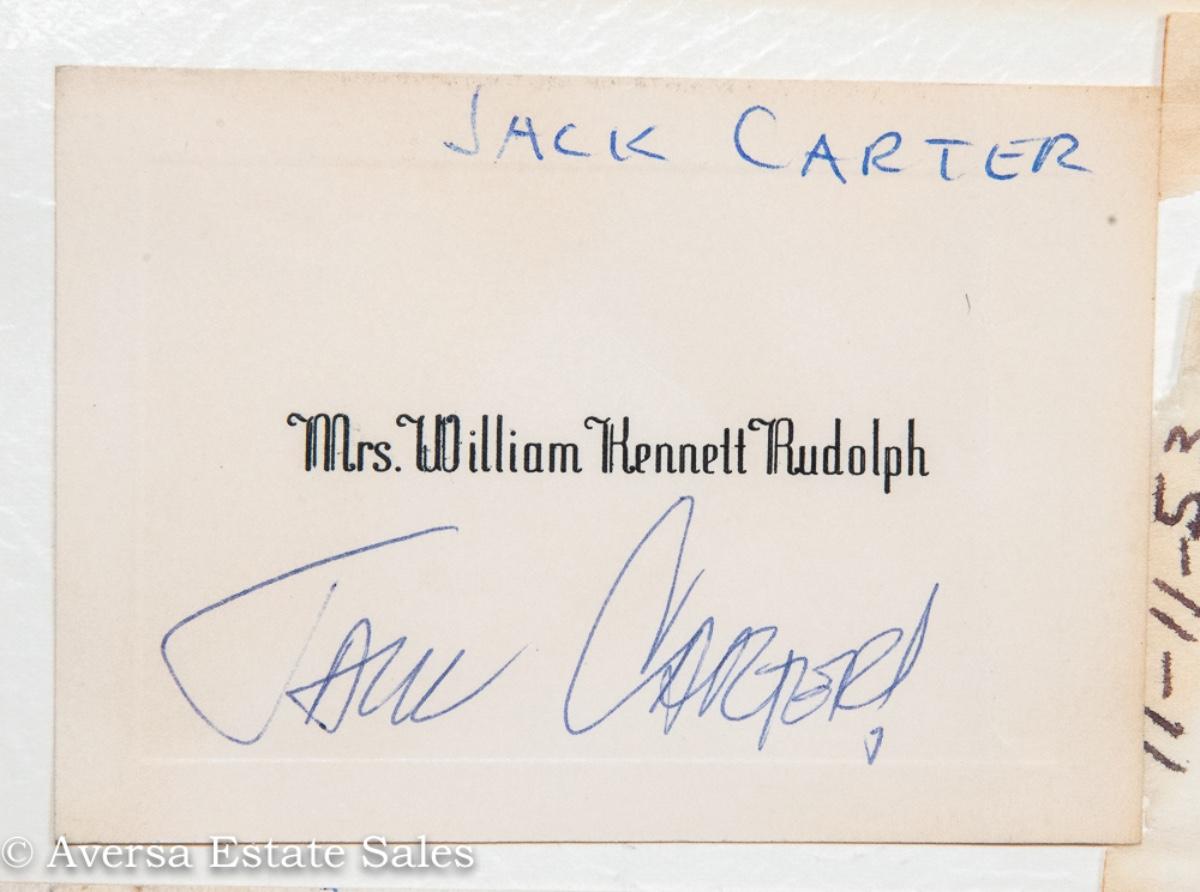 JACK CARTER
Mrs. William Kennett Rudolph
JACK CARTER!
11-11-53
© Aversa Estate Sales